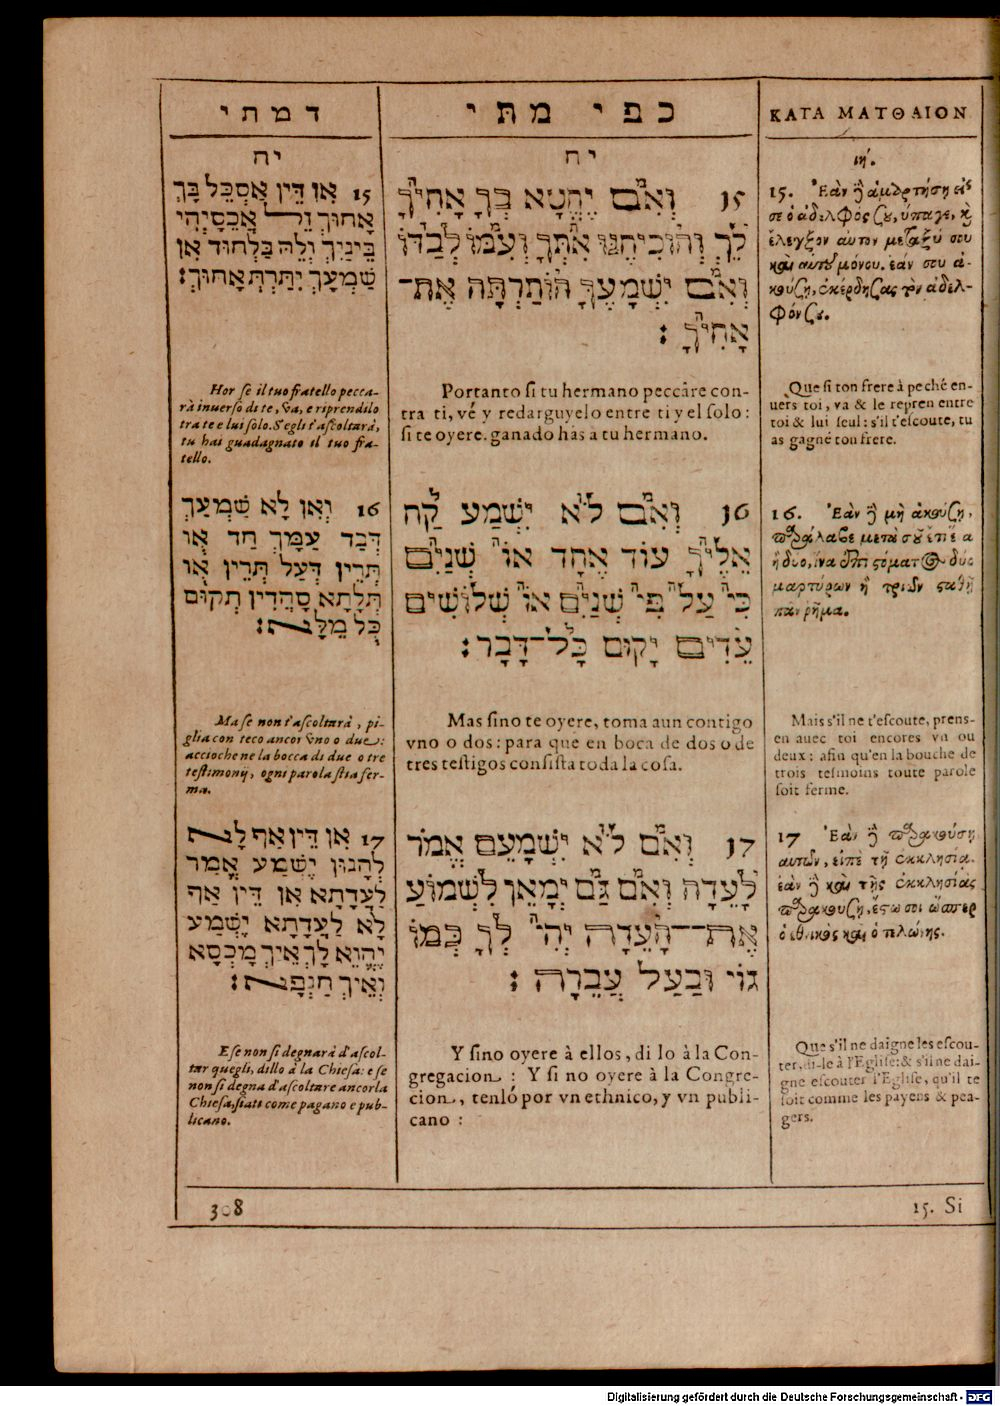 דמתי
יח
15 אִן דֵּין אַסְכֵּל בָּךְ
אָחוּךְ זֶל אַכֵסָיְהִי
בֵּינַיִךְ וְלֵהּ בַּלְחוּד אִן
שַׁמְעָךְ יִתַּרְתְּ אָחוּךְ:
Hor se il tuo fratello pecca-
rà inuerso di te, va, e riprendilo
tra te e lui solo. S'egli t'ascoltarà,
tu hai guadagnato il tuo fra-
tello.
16 וְאִן לָא שַׁמְעַךְ
דְּבַר עַמָּךְ חַד אוּ
תְּרֵין דְּעַל תְּרֵין אוּ
תְּלָתָא סָהֲדִין תְקוּם
כֻּל מֵלָּה:
Ma se non t'ascoltarà, pi-
glia con teco ancor vno o due:
accioche ne la bocca di due o tre
testimonij, ogni parola stia fer-
ma.
17 אִן דֵּין אַף לָה
לְהָנוּן יֶשְׁמַע אֱמַר
לַעְדָתָא אִן דֵּין אַף
לָא לַעֲדָתָא יֶשְׁמַע
יֶהֱוֵא לָךְ אֵיךְ מָכְסָא
וְאֵיךְ חַנְפָּה:
E se non si degnarà d'ascol-
tar quegli, dillo à la Chiesa: e se
non si degna d'ascoltare ancor la
Chiesa, siati come pagano e pub-
licano.
308
כפי מתי
יח
15 וְאִם יֶחֱטָא בְּךָ אָחִיךָ
לֵךְ וְהוֹכִיחֶנּוּ אִתְּךָ וְעִמּוֹ לְבַדּוֹ
וְאִם יִשְׁמָעֶךָּ הוֹתַרְתָּה אֶת־
אָחִיךָ:
Portanto si tu hermano peccàre con-
tra ti, vé y redarguyelo entre ti y el solo:
si te oyere. ganado hàs a tu hermano.
16 וְאִם לֹא יִשְׁמַע קַח
אֵלֶיךָ עוֹד אֶחָד אוֹ שְׁנַיִם
כִּי עַל פִּי שְׁנַיִם אוֹ שְׁלוֹשִׁים
עֵדִים יָקוּם כָּל־דָּבָר:
Mas sino te oyere, toma aun contigo
vno o dos: para que en boca de dos o de
tres testigos consista toda la cosa.
17 וְאִם לֹא יִשְׁמָעֵם אֱמֹר
לָעֵדָה וְאִם גַּם יְמָאֵן לִשְׁמוֹעַ
אֶת־־הָעֵדָה יְהִי לְךָ כְּמוֹ
גוֹי וּבַעַל עֲבֵרָה:
Y sino oyere à ellos, di lo à la Con-
gregacion: Y si no oyere à la Congre-
cion, tenló por vn ethnico, y vn publi-
cano:
ΚΑΤΑ ΜΑΤΘΑΙΟΝ
ιη'.
15. Ἐὰν δὲ ἁμαρτήσῃ εἰς
σὲ ὁ ἀδελφός σου, ὕπαγε, καὶ
ἔλεγξον αὐτὸν μεταξύ σου
καὶ αὐτοῦ μόνου. ἐάν σου ἀ-
κούσῃ, ἐκέρδησας τὸν ἀδελ-
φόν σου.
Que si ton frere à peché en-
uers toi, va & le repren entre
toi & lui seul: s'il t'escoute, tu
as gagné ton frere.
16. Ἐὰν δὲ μὴ ἀκούσῃ,
παράλαβε μετὰ σοῦ ἔτι ἕνα
ἢ δύο, ἵνα ἐπὶ στόματος δύο
μαρτύρων ἢ τριῶν σταθῇ
πᾶν ῥῆμα.
Mais s'il ne t'escoute, prens-
en auec toi encores vn ou
deux: afin qu'en la bouche de
trois tesmoins toute parole
soit ferme.
17 Ἐὰν δὲ παρακούσῃ
αὐτῶν, εἰπὲ τῇ ἐκκλησίᾳ.
ἐὰν δὲ καὶ τῆς ἐκκλησίας
παρακούσῃ, ἔστω σοι ὥσπερ
ὁ ἐθνικὸς καὶ ὁ τελώνης.
Que s'il ne daigne les escou-
ter, di-le à l'Eglise: & s'il ne dai-
gne escouter l'Eglise, qu'il te
soit comme les payens & pea-
gers.
15. Si
Digitalisierung gefördert durch die Deutsche Forschungsgemeinschaft - DFG